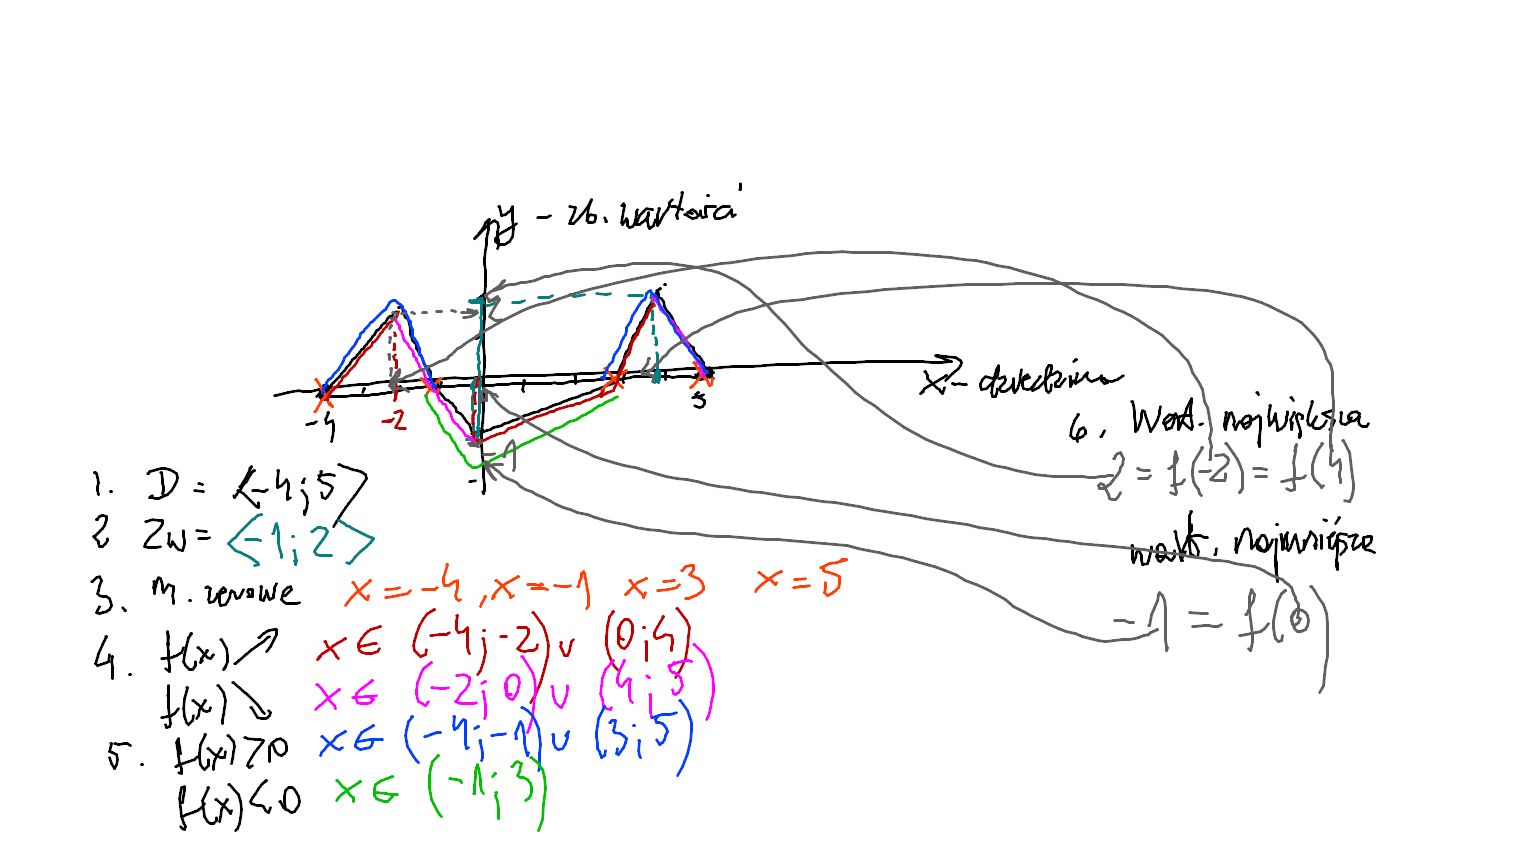 y - zb. wartości
2
x - dziedzina
-4
-2
5
-1
6. Wart. największa
2 = f(-2) = f(4)
wart. najmniejsza
-1 = f(0)
1. D = <-4;5>
2 Zw = <-1;2>
3. M. zerowe x=-4, x=-1 x=3 x=5
4. f(x)↗ x∈ (-4;-2) ∪ (0;4)
f(x)↘ x∈ (-2;0) ∪ (4;5)
5. f(x)>0 x∈ (-4;-1) ∪ (3;5)
f(x)<0 x∈ (-1;3)